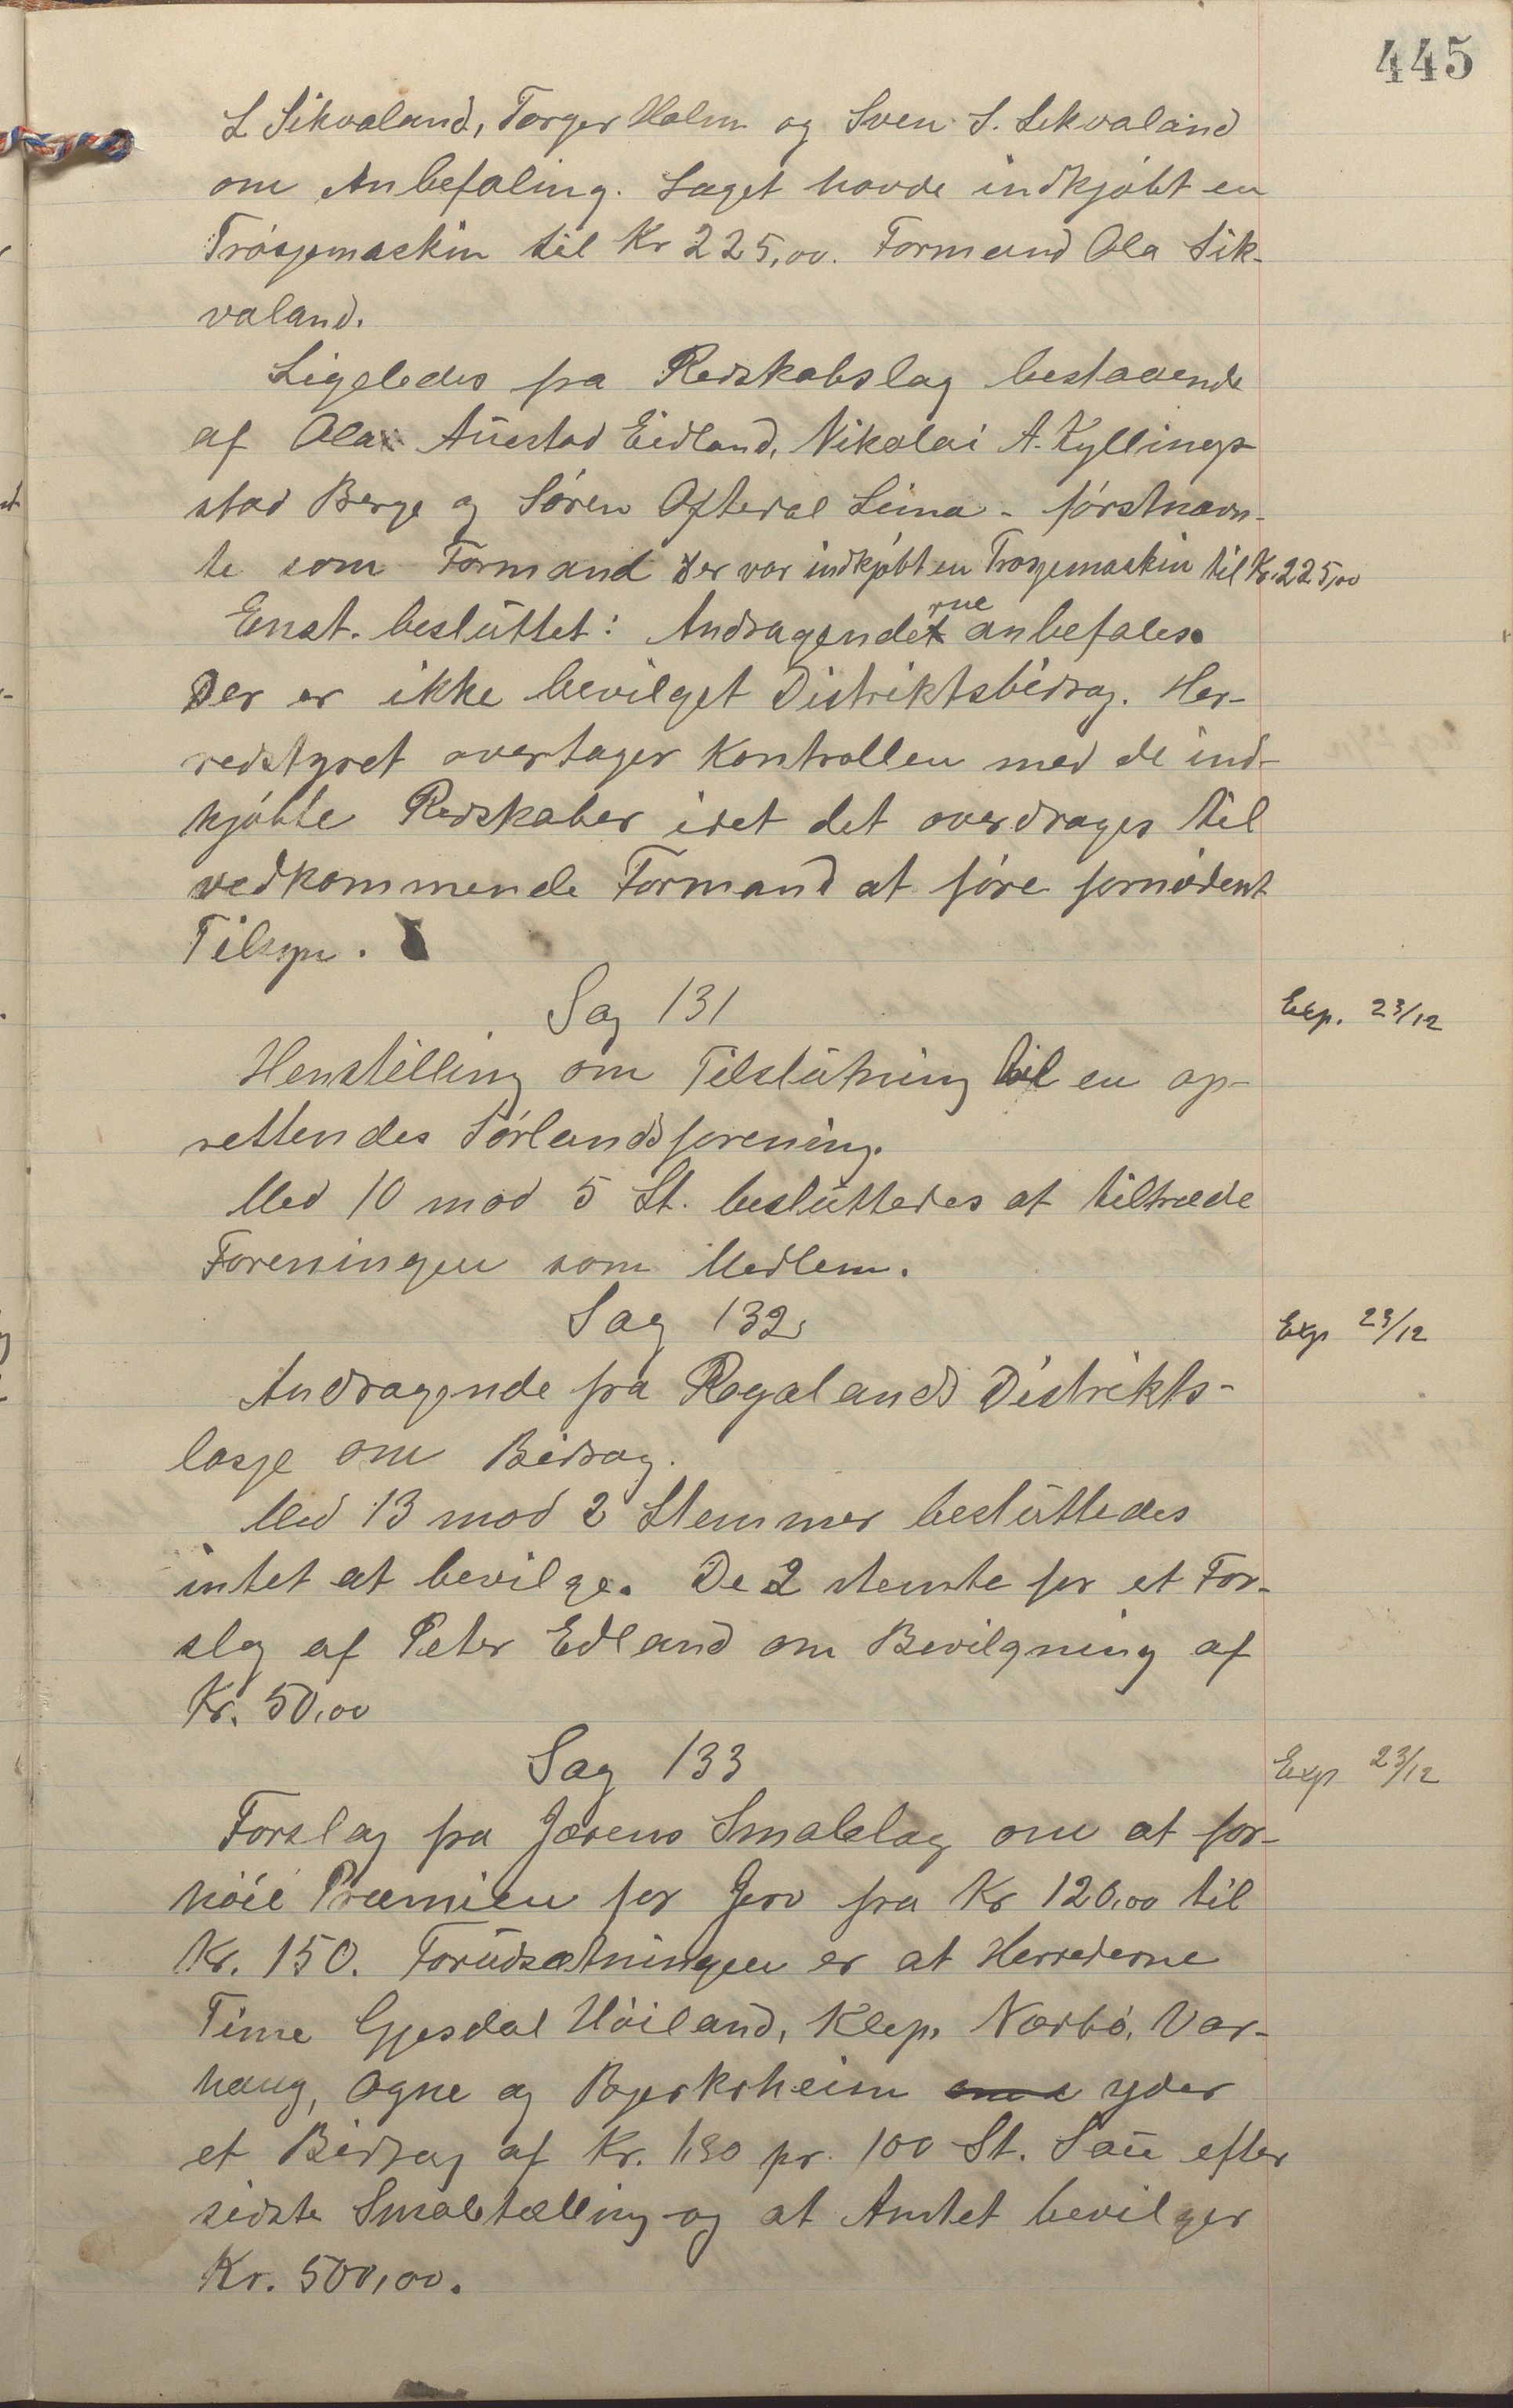 445
L Sikvaland, Torger Holm og Sven S. Sikvaland
om Anbefaling. Laget havde indkjøbt en
Trøsjemaskin til Kr 225,00. Formand Ola Sik-
valand.
Ligeledes fra Redskabslag bestaaende
af Ola Auestad Eidland, Nikolai A. Kyllings
stad Berge og Søren Ofterdal Lima - førstnævn-
te som Formand Der var indkjøbt en Trøsjemaskin til Kr. 225,00
Enst. besluttet: Andragenderne anbefales.
Der er ikke bevilget Distriktsbidrag. Her-
redstyret overtager Kontrollen med de ind-
kjøbte Redskaber idet det overdrages til
vedkommende Formand at føre fornødent
Tilsyn.
Sag 131 Exp. 23/12
Henstilling om Tilslutning til en op-
rettendes Sørlandsforening.
Med 10 mod 5 St. besluttedes at tiltræde
Foreningen som Medlem.
Sag 132 Exp 23/12
Andragende fra Rogalands Distrikts-
losje om Bidrag.
Med 13 mod 2 Stemmer besluttedes
intet at bevilge. De 2 stemte for et For-
slag af Peter Edland om Bevilgning af
Kr. 50,00
Sag 133 Exp 23/12
Forslag fra Jærens Smalelag om at for-
høie Præmien for Jerv fra Kr 120,00 til
Kr. 150. Forudsætningen er at Herrederne
Time Gjesdal Høiland, Klep, Nærbø, Var-
haug, Ogne og Bjerkreim yder
et Bidrag af Kr. 1,30 pr. 100 St. Sau efter
sidste Smaletælling og at Amtet bevilger
Kr. 500,00.